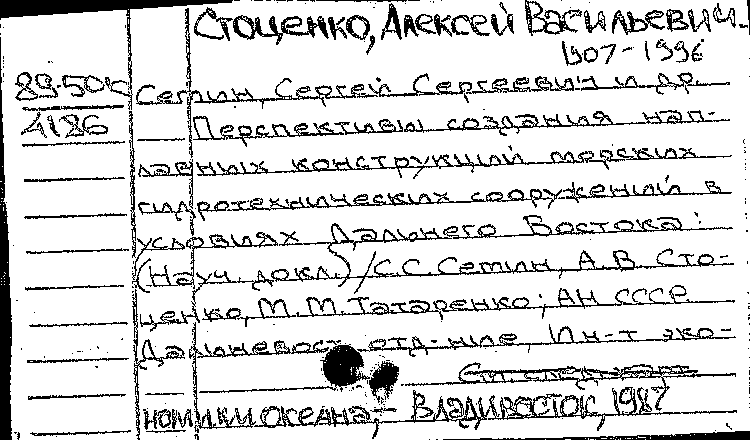 Стоценко, Алексей Васильевич.
1907-1996
89-50к
4186
Семин, Сергей Сергеевич и др.
Перспективы создания нап-
лавных конструкций морских
гидротехнических сооружений в
условиях Дальнего Востока:
(Науч. докл.)/С.С. Семин, А.В. Сто-
ценко, М.М. Татаренко; АН СССР
Дальневост. отд-ние, Ин-т эко-
См. след. карт.
номики океана,- Владивосток, 1987